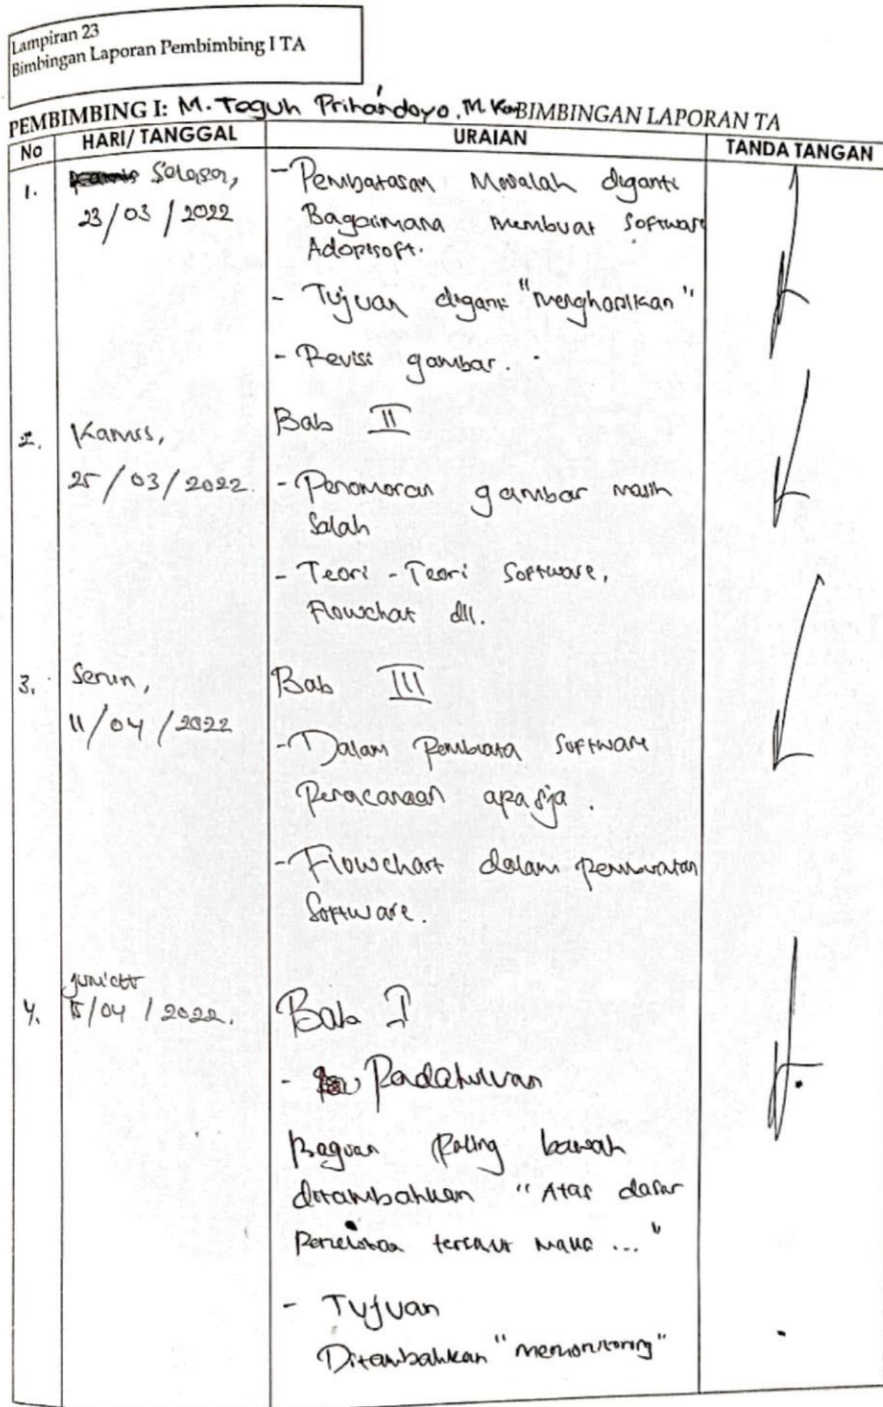 Lampiran 23
Bimbingan Laporan Pembimbing I TA
PEMBIMBING I: M. Teguh Prihandoyo, M. Kom BIMBINGAN LAPORAN TA
No HARI/ TANGGAL URAIAN TANDA TANGAN
1. Selasa,
23/03/2022
- Pembatasan Masalah diganti
Bagaimana membuat software
- Tujuan diganti "menghasilkan"
- Revisi gambar.
2. Kamis,
25/03/2022.
Bab II
- Penomoran gambar masih
Salah
- Teori - Teori Software,
Flowchat dll.
3. Senin,
11/04/2022
Bab III
- Dalam Software
apa sja.
- Flowchart dalam pembuatan
Software.
4.
15/04/2022.
Bab I
-
Bagian Paling bawah
ditambahkan "Atas dasar
tersebut maka ..."
- Tujuan
Ditambahkan "memonitoring"